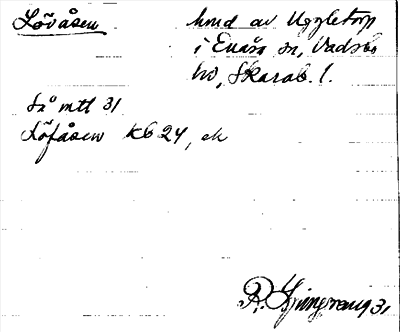 Lövåsen
hmd av Uggletorp
i Enåsa sn, Vadsbo
hd, Skarab. l.
Så mtl 31
Löfåsen Kb 24, ek
R. Ljunggren 31